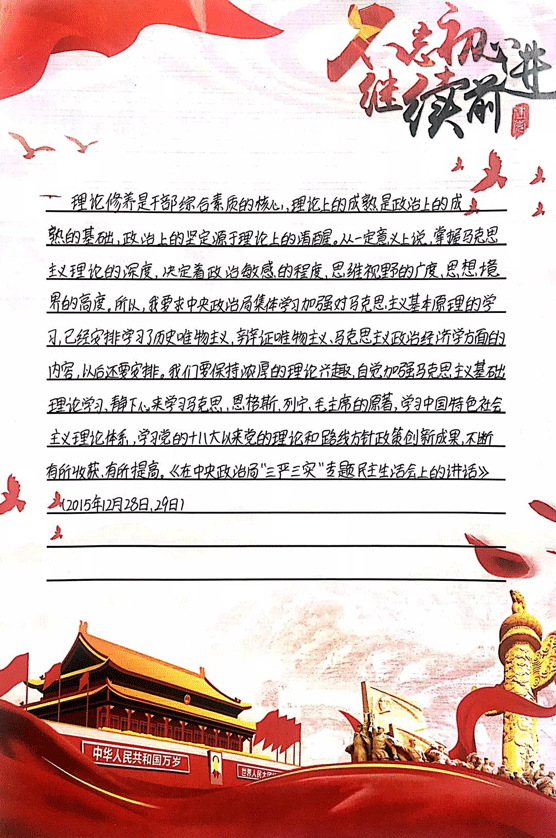 不忘初心
继续前进
理论修养是干部综合素质的核心,理论上的成熟是政治上的成
熟的基础,政治上的坚定源于理论上的清醒。从一定意义上说,掌握马克思
主义理论的深度,决定着政治敏感的程度,思维视野的广度,思想境
界的高度。所以,我要求中央政治局集体学习加强对马克思主义基本原理的学
习,已经安排学习了历史唯物主义,辩证唯物主义、马克思主义政治经济学方面的
内容,以后还要安排。我们要保持浓厚的理论兴趣,自觉加强马克思主义基础
理论学习、静下心来学习马克思,恩格斯、列宁、毛主席的原著,学习中国特色社会
主义理论体系,学习党的十八大以来党的理论和路线方针政策创新成果,不断
有所收获、有所提高。《在中央政治局"三严三实"专题民主生活会上的讲话》
(2015年12月28日,29日)
中华人民共和国万岁
世界人民大团结